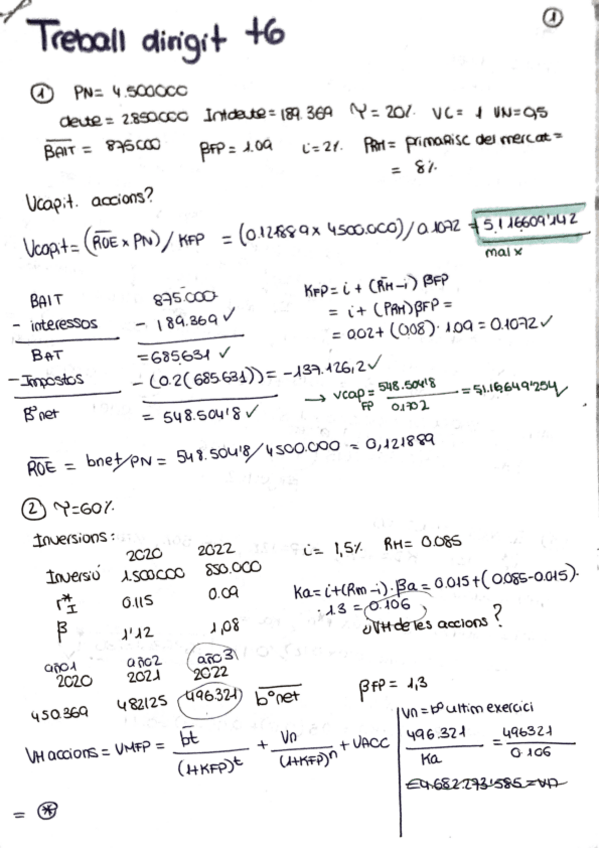 1
Treball dirigit t6
1 PN= 4.500000
deute = 2.850000 Intdeute = 189.369 γ = 20% VC = 1 VN=0,5
BAIT = 875000 βFP = 1.09 i=2% PRM= prima Risc del mercat =
= 8%
Vcapit. accions?
Vcapit = (ROE x PN) / KFP = (0.121889 x 4500.000) / 0.1072 = 5.116609'142
mal x
BAIT 875.000
- interessos - 189.369 ✓
BAT = 685.631 ✓
- Impostos - (0.2(685.631)) = -137.126,2 ✓
Bº net = 548.504'8 ✓
KFP = i + (RM-i) βFP
= i + (PRM)βFP =
= 0.02 + (0.08)·1.09 = 0.1072 ✓
→ vcap FP = 548.504'8 / 0.1702 = 5.116,649'254 ✓
ROE = bnet/PN = 548.504'8 / 4500.000 = 0,121889
2 γ=60%
Inversions:
2020 2022
Inversió 1.500.000 850.000
r*I 0.115 0.09
β 1'12 1,08
i= 1,5% RM= 0.085
Ka = i+(Rm-i)·βa = 0.015+(0.085-0.015)·
·1.3 = 0.106
¿VM de les accions?
año1 año2 año3
2020 2021 2022
450.369 482125 496321 bº net
βFP = 1,3
VM accions = VMFP = bt / (1+KFP)^t + Vn / (1+KFP)^n + VACC
Vn = bº ultim exercici
496.321 / Ka = 496321 / 0.106
= 4.682.273'585 = VN
= *